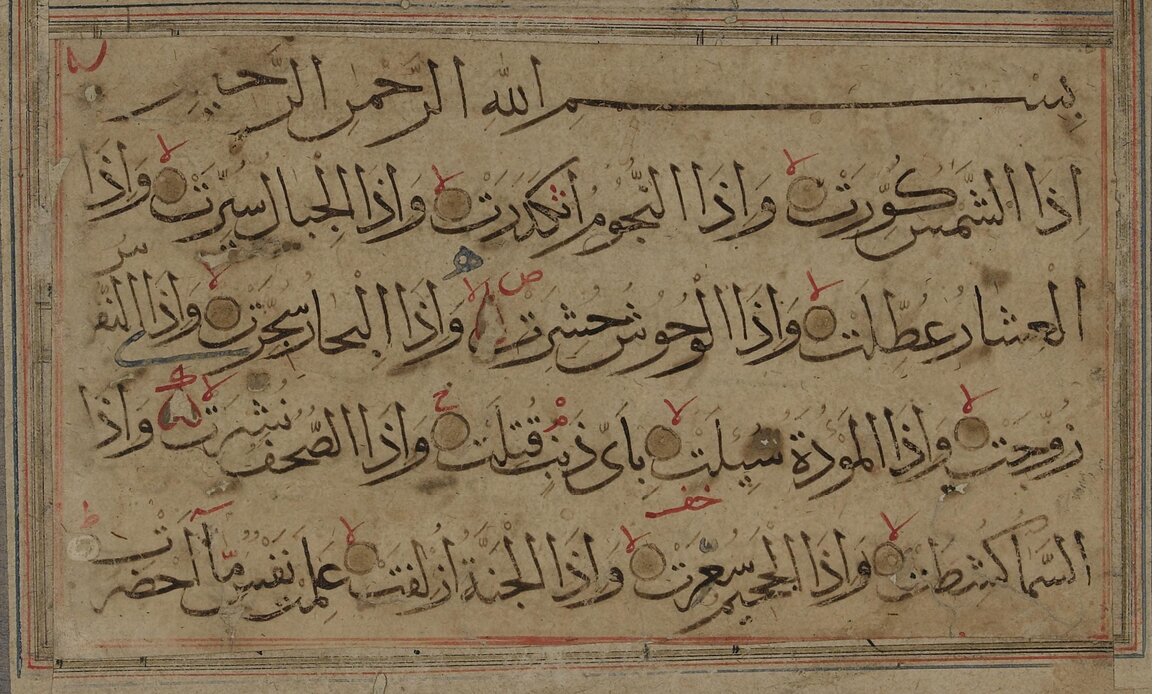 بِسْمِ اللهِ الرَّحْمٰنِ الرَّحِيمِ
اِذَا الشَّمْسُ كُوِّرَتْ وَاِذَا النُّجُومُ انْكَدَرَتْ وَاِذَا الْجِبَالُ سُيِّرَتْ وَاِذَا
الْعِشَارُ عُطِّلَتْ وَاِذَا الْوُحُوشُ حُشِرَتْ وَاِذَا الْبِحَارُ سُجِّرَتْ وَاِذَا النُّفُوسُ
زُوِّجَتْ وَاِذَا الْمَوْءُدَةُ سُئِلَتْ بِاَىِّ ذَنْبٍ قُتِلَتْ وَاِذَا الصُّحُفُ نُشِرَتْ وَاِذَا
السَّمَاءُ كُشِطَتْ وَاِذَا الْجَحِيمُ سُعِّرَتْ وَاِذَا الْجَنَّةُ اُزْلِفَتْ عَلِمَتْ نَفْسٌ مَّا اَحْضَرَتْ